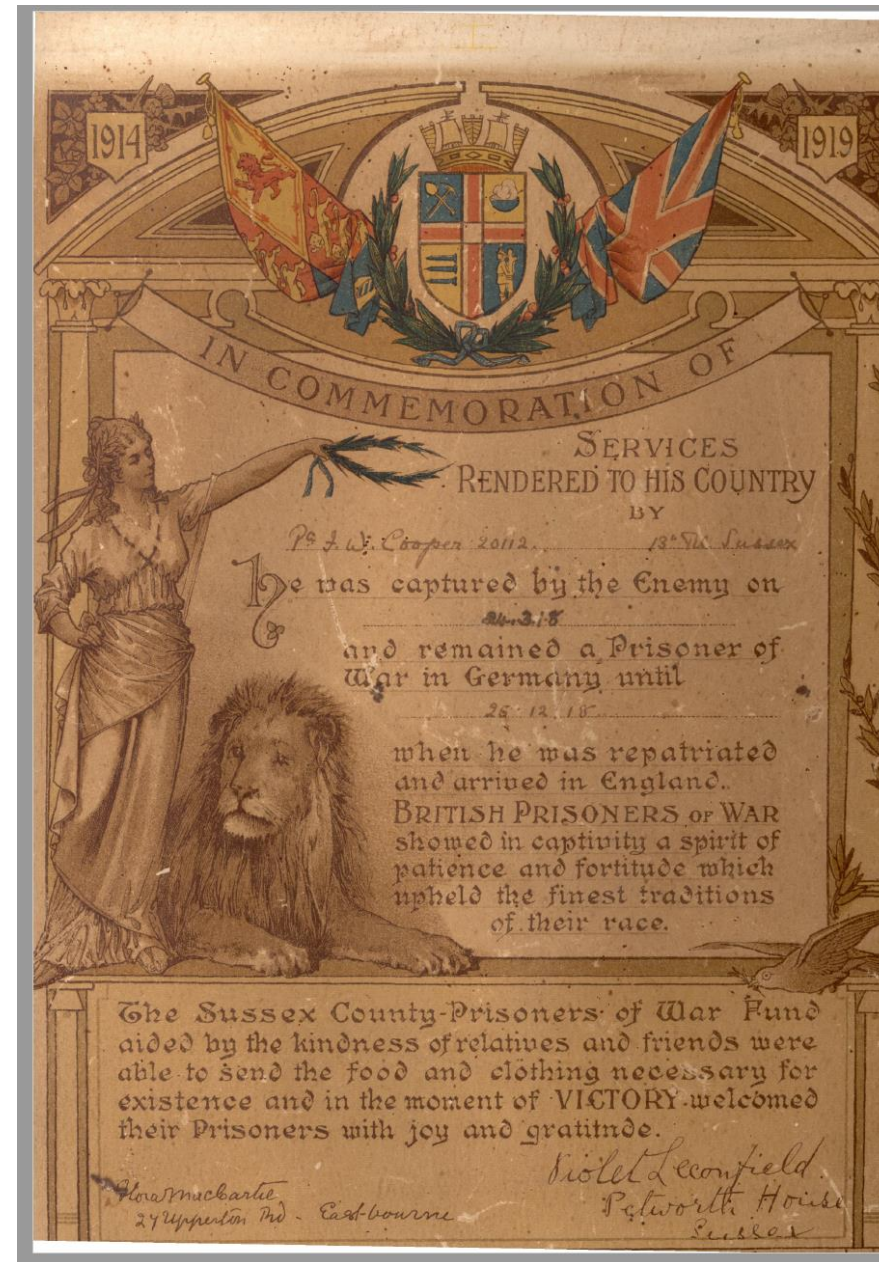 1914
1919
IN COMMEMORATION OF
SERVICES
RENDERED TO HIS COUNTRY
BY
Cooper 20112. 13th Sussex
He was captured by the Enemy on
24.3.18
and remained a Prisoner of
War in Germany until
26.12.18
when he was repatriated
and arrived in England.
BRITISH PRISONERS OF WAR
showed in captivity a spirit of
patience and fortitude which
upheld the finest traditions
of their race.
The Sussex County Prisoners of War Fund
aided by the kindness of relatives and friends were
able to send the food and clothing necessary for
existence and in the moment of VICTORY welcomed
their Prisoners with joy and gratitude.
Violet Leconfield
Petworth House
Sussex
Flora MacCartie
27 Upperton Rd - Eastbourne